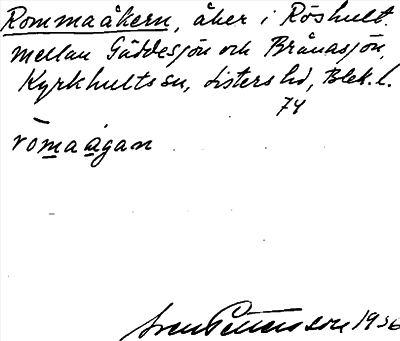 Rommaåkern, åker i Röshult.
mellan Gäddesjön och Brånasjön,
Kyrkhults sn, Listers hd, Blek. l.
74
rōmaågan
Sven Pettersson 1936